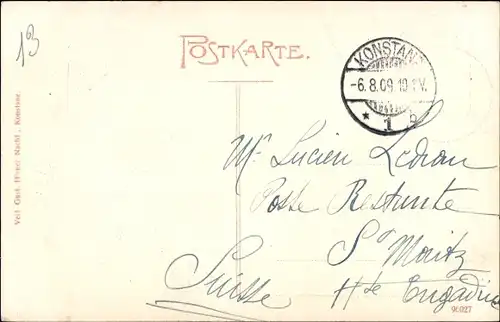 13
POSTKARTE.
KONSTANZ
-6.8.09.10-11V.
* 1 a
Mr Lucien Ledran
Poste Restante
St Moritz
Suisse Hte Engadine
96027
Verl. Gust.
Nachf., Konstanz